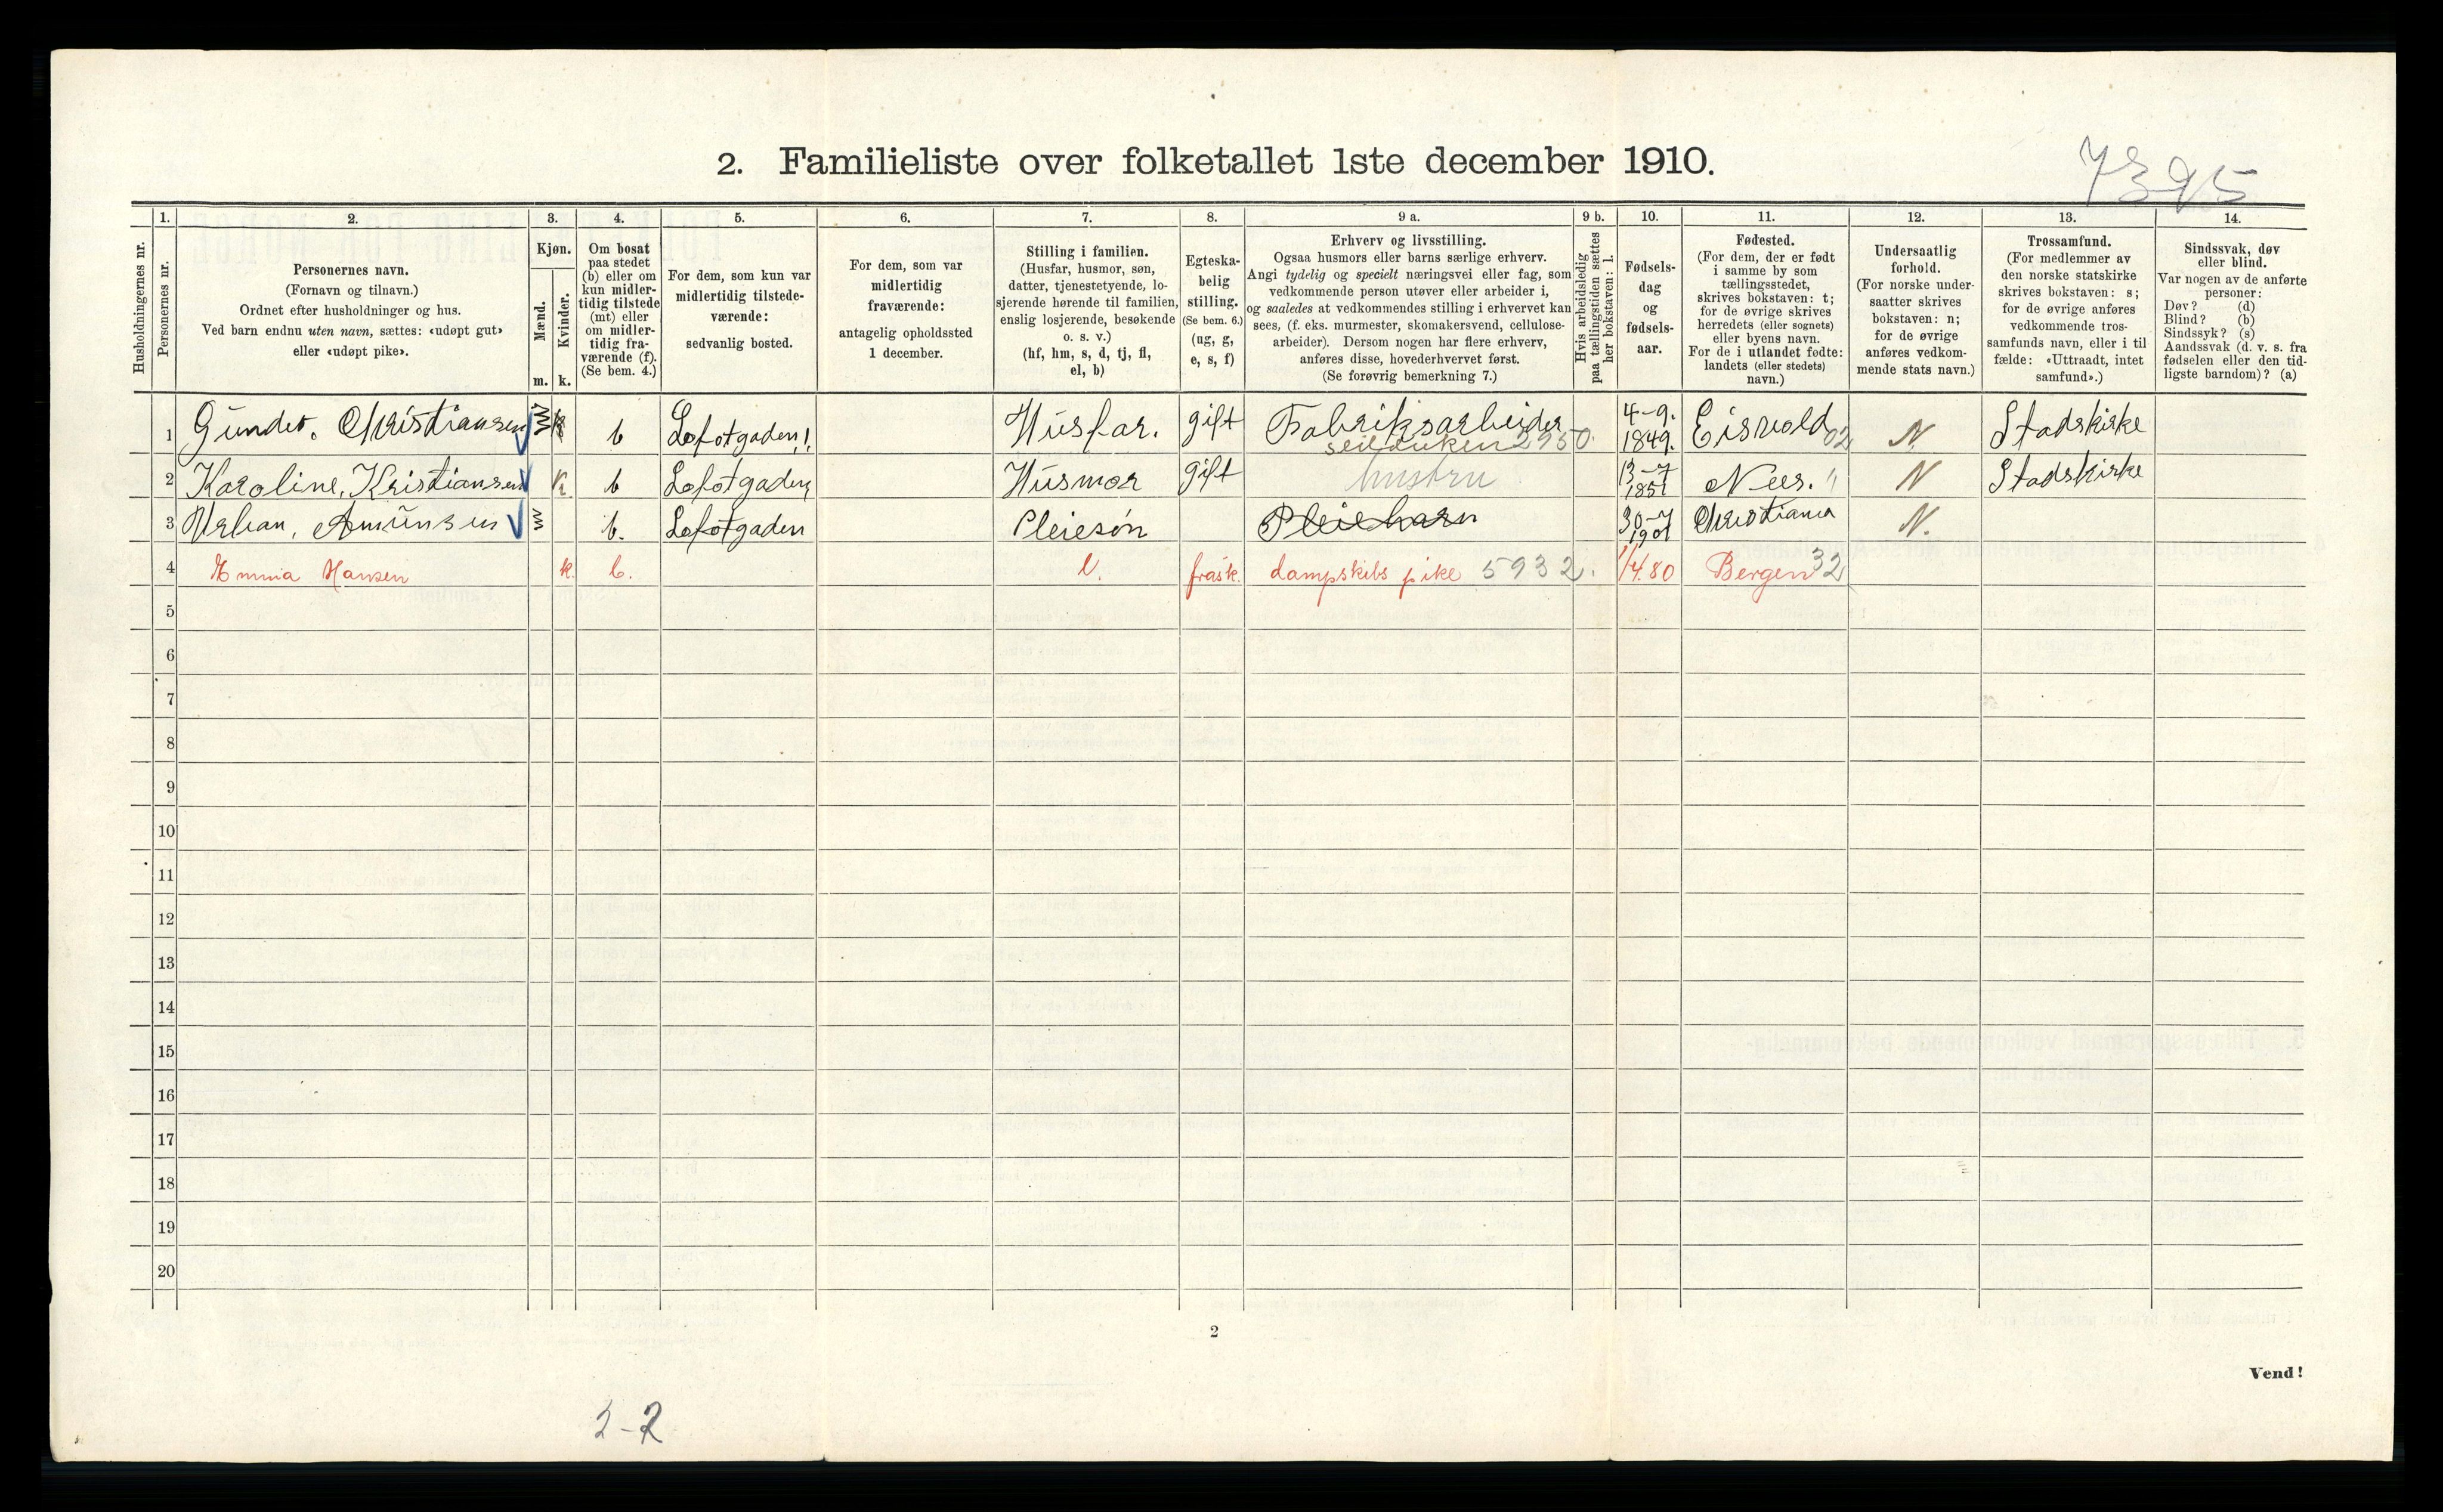 2. Familieliste over folketallet 1ste december 1910.
7395
Husholdningernes nr.
1.
Personernes nr.
2.
Personernes navn.
(Fornavn og tilnavn.)
Ordnet efter husholdninger og hus.
Ved barn endnu uten navn, sættes: «udøpt gut»
eller «udøpt pike».
3.
Kjøn.
Mænd.
Kvinder.
m.
k.
4.
Om bosat
paa stedet
(b) eller om
kun midler-
tidig tilstede
(mt) eller
om midler-
tidig fra-
værende (f).
(Se bem. 4.)
5.
For dem, som kun var
midlertidig tilstede-
værende:
sedvanlig bosted.
6.
For dem, som var
midlertidig
fraværende:
antagelig opholdssted
1 december.
7.
Stilling i familien.
(Husfar, husmor, søn,
datter, tjenestetyende, lo-
sjerende hørende til familien,
enslig losjerende, besøkende
o. s. v.)
(hf, hm, s, d, tj, fl,
el, b)
8.
Egteska-
belig
stilling.
(Se bem. 6.)
(ug, g,
e, s, f)
9 a.
Erhverv og livsstilling.
Ogsaa husmors eller barns særlige erhverv.
Angi tydelig og specielt næringsvei eller fag, som
vedkommende person utøver eller arbeider i,
og saaledes at vedkommendes stilling i erhvervet kan
sees, (f. eks. murmester, skomakersvend, cellulose-
arbeider). Dersom nogen har flere erhverv,
anføres disse, hovederhvervet først.
(Se forøvrig bemerkning 7.)
9 b.
Hvis arbeidsledig
paa tællingstiden sættes
her bokstaven: l.
10.
Fødsels-
dag
og
fødsels-
aar.
11.
Fødested.
(For dem, der er født
i samme by som
tællingsstedet,
skrives bokstaven: t;
for de øvrige skrives
herredets (eller sognets)
eller byens navn.
For de i utlandet fødte:
landets (eller stedets)
navn.)
12.
Undersaatlig
forhold.
(For norske under-
saatter skrives
bokstaven: n;
for de øvrige
anføres vedkom-
mende stats navn.)
13.
Trossamfund.
(For medlemmer av
den norske statskirke
skrives bokstaven: s;
for de øvrige anføres
vedkommende tros-
samfunds navn, eller i til
fælde: «Uttraadt, intet
samfund».)
14.
Sindssvak, døv
eller blind.
Var nogen av de anførte
personer:
Døv? (d)
Blind? (b)
Sindssyk? (s)
Aandssvak (d. v. s. fra
fødselen eller den tid-
ligste barndom)? (a)
1 Gunder. Christiansen m b Lofotgaden 11 Husfar. gift Fabriksarbeider seilduken 2950. 4-9. 1849. Eisvold 02 N. Stadskirke
2 Karoline. Kristiansen k b Lofotgaden Husmor gift hustru 13-7 1851 Nees. 11 N Stadskirke
3 Amunsen m b. Lofotgaden Pleiesøn Pleiebarn 30-7 1901 Christiania N.
4 Emma Hansen k. b. l. frask. dampskibs pike 5932. 1/4.80 Bergen 32
5
6
7
8
9
10
11
12
13
14
15
16
17
18
19
20
2
Vend!
2-2